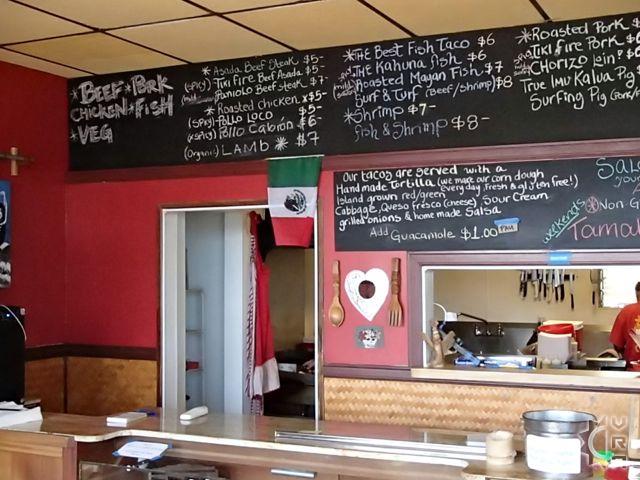 *BEEF *PORK
CHICKEN *FISH
*VEG
*Asada Beef Steak $5-
(spicy) Tiki Fire Beef Asada $5-
(mild) Paniolo Beef Steak $7-
*Roasted chicken x $5-
(spicy) Pollo Loco $5-
(xspicy) Pollo Cabrón $6-
(organic) LAMB * $7
*THE Best Fish Taco $6
*The Kahuna fish $6
*Roasted Mayan Fish $7
Surf & Turf (Beef/Shrimp) $8
*Shrimp $7-
fish & Shrimp $8-
*Roasted Pork
Tiki Fire Pork $6
Chorizo
True Imu Kalua Pig
Surfing Pig
Our tacos are served with a
Handmade Tortilla (we make our corn dough
every day, fresh & gluten free!)
Island grown red/green
Cabbage, Queso fresco (cheese), Sour Cream
grilled onions & home made Salsa
Add Guacamole $1.00
weekends
Non G